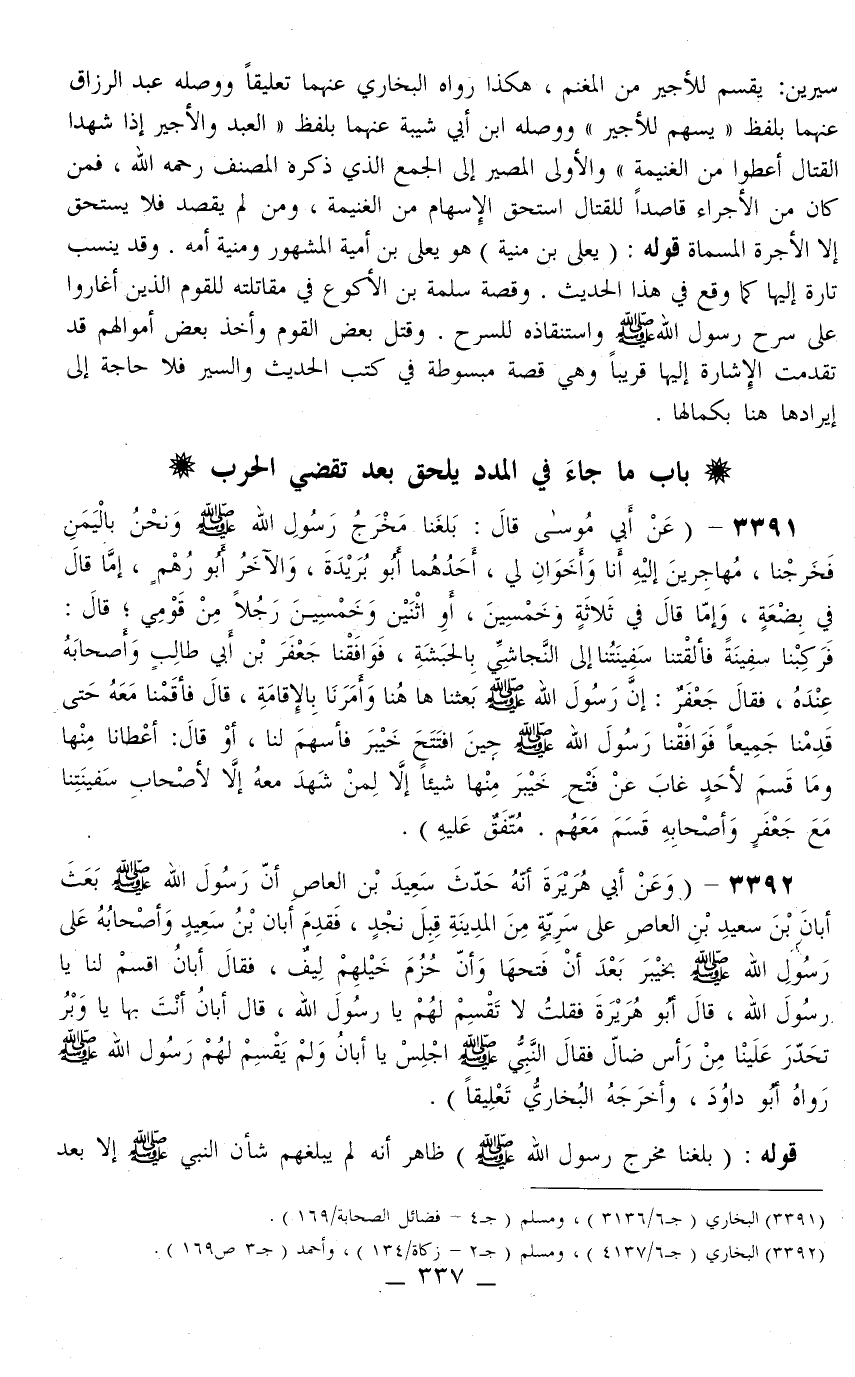 سيرين: يقسم للأجير من المغنم ، هكذا رواه البخاري عنهما تعليقاً ووصله عبد الرزاق
عنهما بلفظ « يسهم للأجير » ووصله ابن أبي شيبة عنهما بلفظ « العبد والأجير إذا شهدا
القتال أعطوا من الغنيمة » والأولى المصير إلى الجمع الذي ذكره المصنف رحمه الله ، فمن
كان من الأجراء قاصداً للقتال استحق الإسهام من الغنيمة ، ومن لم يقصد فلا يستحق
إلا الأجرة المسماة قوله : ( يعلى بن منية ) هو يعلى بن أمية المشهور ومنية أمه . وقد ينسب
تارة إليها كما وقع في هذا الحديث . وقصة سلمة بن الأكوع في مقاتلته للقوم الذين أغاروا
على سرح رسول الله ﷺ واستنقاذه للسرح . وقتل بعض القوم وأخذ بعض أموالهم قد
تقدمت الإشارة إليها قريباً وهي قصة مبسوطة في كتب الحديث والسير فلا حاجة إلى
إيرادها هنا بكمالها .
باب ما جاءَ في المدد يلحق بعد تقضي الحرب
٣٣٩١ – ( عَنْ أَبي مُوسىٰ قالَ : بَلغَنا مَخْرَجُ رَسُولِ الله ﷺ وَنحْنُ بالْيَمَنِ
فَخَرجْنا ، مُهاجِرينَ إليْهِ أَنا وَأَخَوَانِ لي ، أَحَدُهُما أَبُو بُرَيْدَةَ ، وَالآخَرُ أَبُو رُهْمٍ ، إمَّا قالَ
في بِضْعَةٍ ، وَإمّا قالَ في ثَلاثَةٍ وَخَمْسِينَ ، أَوِ اثْنَيْن وَخَمْسِينَ رَجُلاً مِنْ قَوْمِي ؛ قالَ :
فَرَكِبْنا سفِينَةً فألقْتنا سَفِينَتُنا إلى النَّجاشيِّ بِالحَبَشَةِ ، فَوَافَقْنا جَعْفَرَ بْن أَبي طالِبٍ وَأَصحابَهُ
عِنْدَهُ ، فقالَ جَعْفَرٌ : إنَّ رَسُولَ الله ﷺ بَعثنا ها هُنا وَأَمَرَنَا بِالإقامَةِ ، قالَ فأقَمْنا مَعَهُ حَتى
قَدِمْنا جَمِيعاً فَوَافَقْنا رَسُولَ الله ﷺ حِينَ افْتَتَحَ خَيْبَرَ فأسهمَ لنا ، أوْ قالَ: أعْطانا مِنْها
ومَا قَسمَ لأحَدٍ غابَ عنْ فَتْحِ خَيْبَرَ مِنْها شيئاً إلَّا لِمنْ شَهدَ معهُ إلَّا لأصْحابِ سَفينَتِنا
مَعَ جَعْفَرٍ وَأصْحابِهِ قَسَمَ مَعَهُم . مُتّفَقٌ عَليهِ ) .
٣٣٩٢ – ( وَعَنْ أبي هُرَيْرَةَ أنّهُ حَدّثَ سَعِيدَ بْن العاصِ أنّ رَسُولَ الله ﷺ بَعَثَ
أبانَ بْنَ سعيدِ بْنِ العاصِ على سَرِيّةٍ مِنَ المدِينَةِ قِبَلَ نجْدٍ ، فَقدِمَ أبان بْنُ سَعِيدٍ وَأصْحابُهُ عَلى
رَسُولِ الله ﷺ بخيْبرَ بَعْدَ أنْ فَتحهَا وَأنّ حُزُمَ خَيْلهِمْ لِيفٌ ، فقالَ أبانُ اقسمْ لنا يا
رسُولَ الله ، قالَ أبُو هُرَيْرَةَ فقلتُ لا تَقْسِمْ لهُمْ يا رسُولَ الله ، قال أبانُ أنْتَ بها يا وَبْرُ
تحَدّرَ عَلَينْا مِنْ رَأس ضالّ فقالَ النَّبيُّ ﷺ اجْلِسْ يا أبانُ وَلمْ يَقْسِمْ لهُمْ رَسُول الله ﷺ
رَواهُ أبُو داوُدَ ، وأخرَجَهُ البُخاريُّ تَعْلِيقاً ) .
قوله : ( بلغنا مخرج رسول الله ﷺ ) ظاهر أنه لم يبلغهم شأن النبي ﷺ إلا بعد
(٣٣٩١) البخاري ( جـ٦/٣١٣٦ ) ، ومسلم ( جـ٤ – فضائل الصحابة/١٦٩ ) .
(٣٣٩٢) البخاري ( جـ٦/٤١٣٧ ) ، ومسلم ( جـ٢ – زكاة/١٣٤ ) ، وأحمد ( جـ٣ ص١٦٩ ) .
– ٣٣٧ –